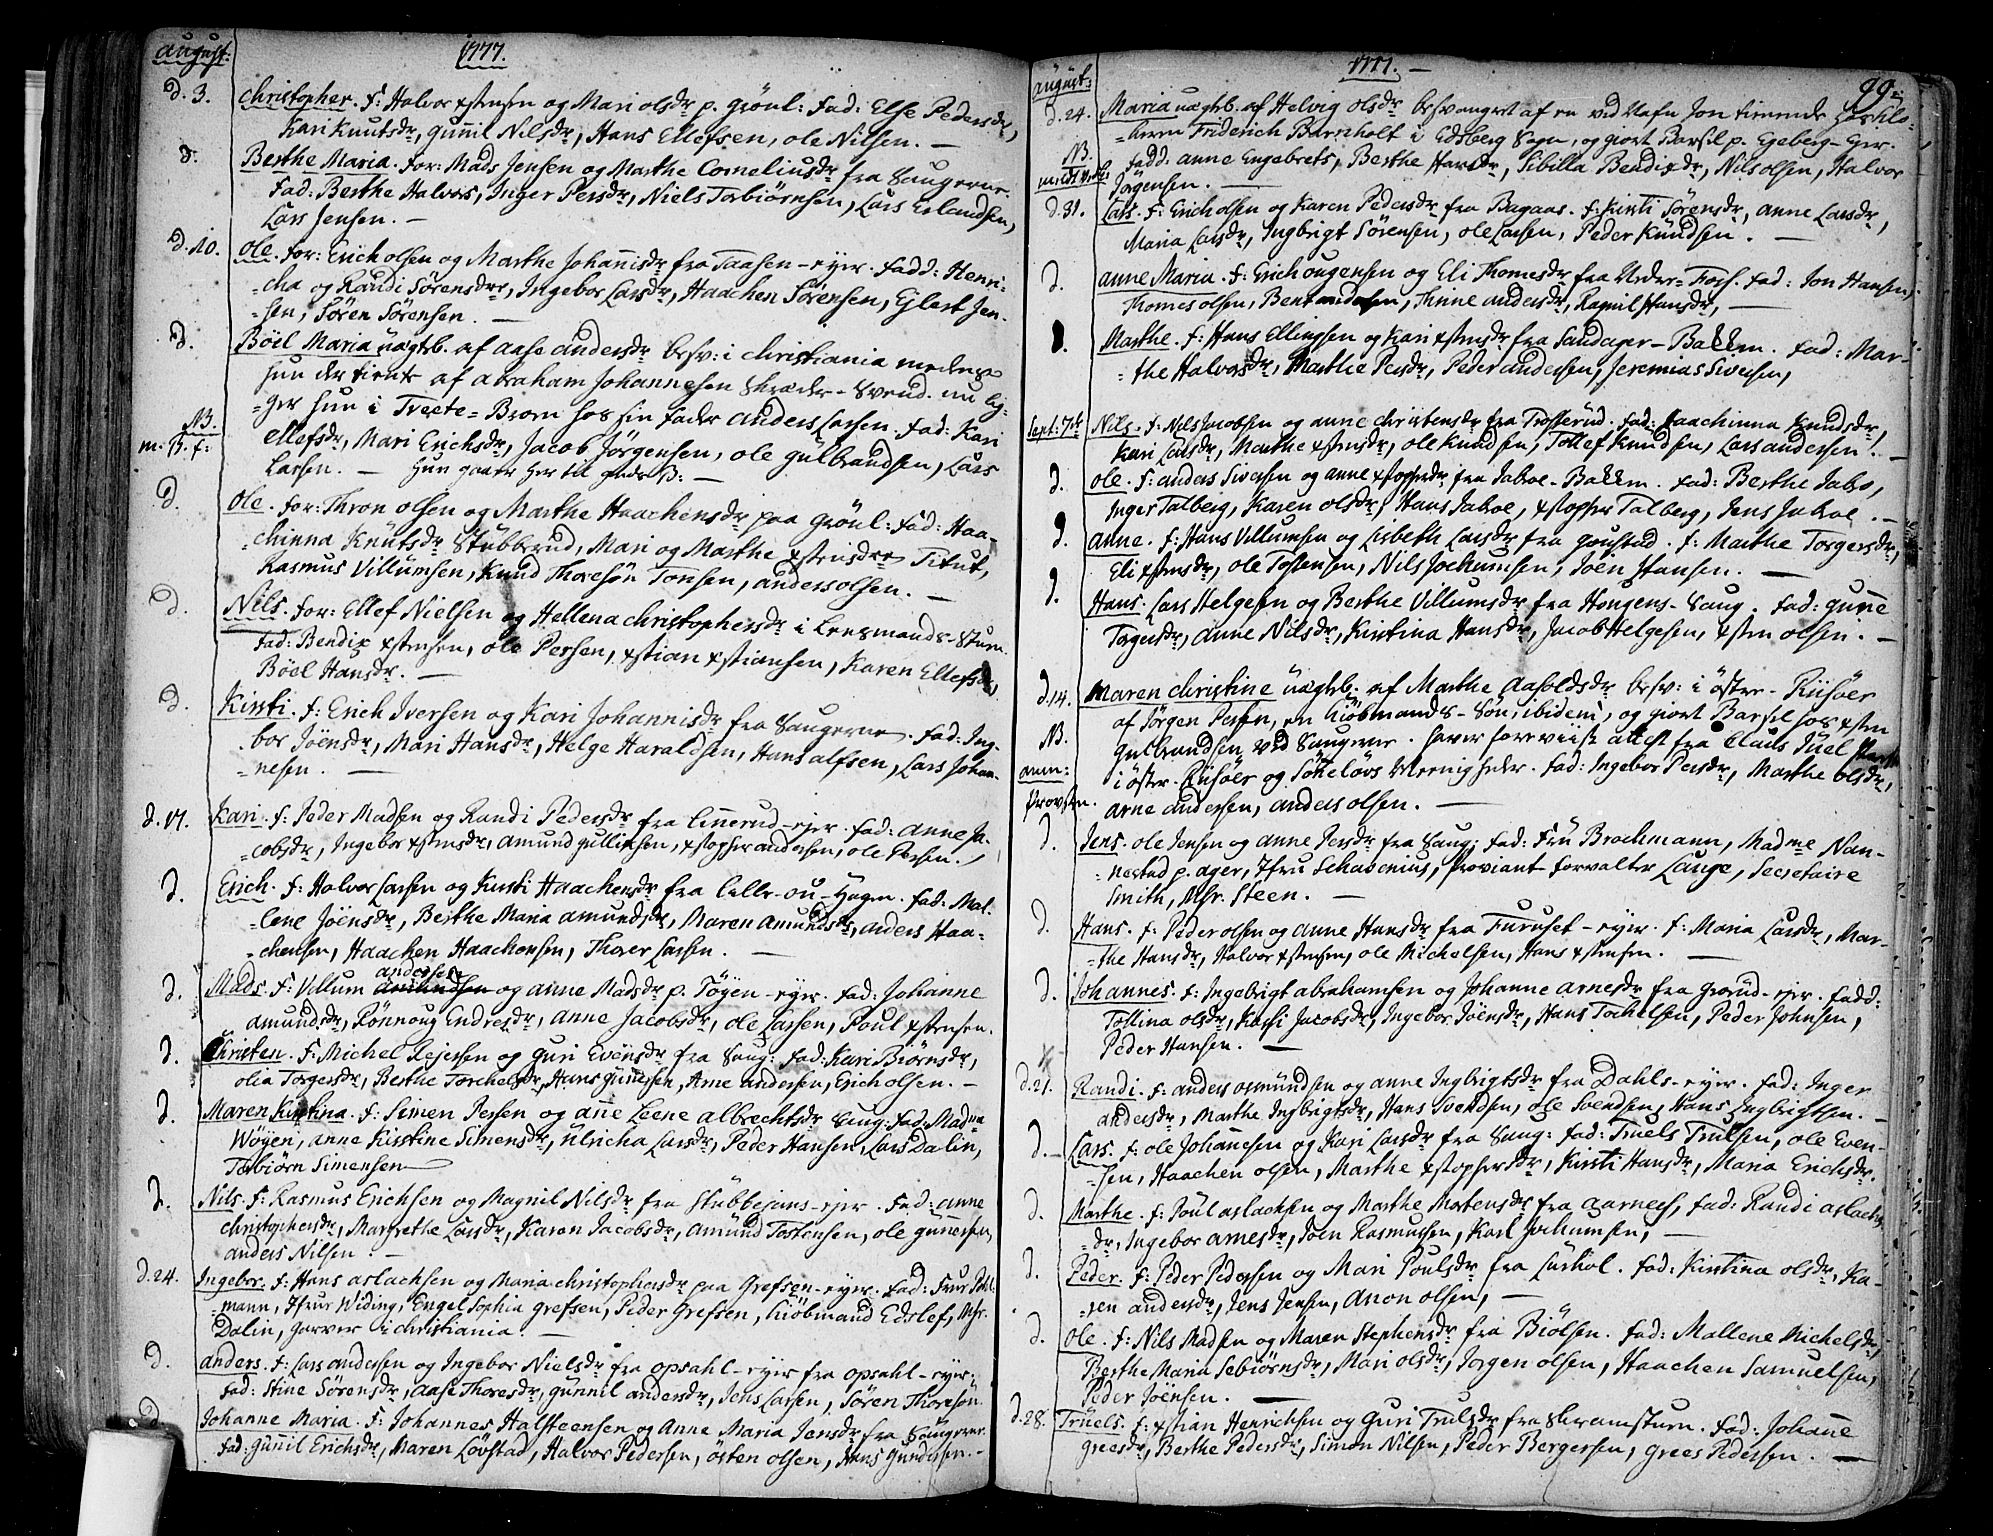 august:
1777.
d. 3. Christopher. F: Halvor xstensen og Mari olsdr p. Grönl: Fad: Else Pedersdr,
Kari Knutsdr, Gunnil Nilsdr, Hans Ellefsen, ole Nilsen. —
d. Berthe Maria. for: Mads Jensen og Marthe Corneliusdr fra Saugerne
Fad: Berthe Halvors, Inger Persdr, Niels Torbiörnsen, Lars Erlandsen,
Lars Jensen. —
d. 10. ole. for: Erich olsen og Marthe Johannisdr fra Taasen-eyer. Fadd: Henri-
-cha og Randi Sörensdr, Ingebor Larsdr, Haachen Sörensen, Ejlert Jen-
-sen, Sören Sörensen. —
d. Böel Maria uægtb. af Aase Andersdr besv: i Christiania medens
hun der tiente af Abraham Johannesen Skræder-Svend. nu lig-
-ger hun i Treete-Broen hos sin Fader Anders Larsen. Fad: Kari
NB. Ellefsdr, Mari Erichsdr, Jacob Jörgensen, ole Gulbrandsen, Lars
m. B. f: Larsen. — Hun gaaer her til
d. ole. for: Thron olsen og Marthe Haachensdr paa Grönl: Fad: Haa-
chinna Knutsdr Stubberud, Mari og Marthe xstensdr Titut,
Rasmus Villumsen, Knud Thoresön Tonsen, anders olsen. —
d. Nils. for: Ellef Nielsen og Hellena Christophersdr i Lensmands-Stuen
Fad: Bendix xstensen, ole Persen, xstian xstiansen, Karen Ellefsdr,
Böel Hansdr. —
d. Kirsti. f: Erich Iversen og Kari Johannisdr fra Saugerne. Fad: Ing-
bor Jöensdr, Mari Hansdr, Helge Haraldsen, Hans alfsen, Lars Johan-
-nesen. —
d. 17. Kari. f: Peder Madsen og Randi Pedersdr fra Linnerud-ejer. Fad: Anne Ja-
-cobsdr, Ingebor xstensdr, Amund Gullixsen, xstopher andersen, ole Persen.
d. Erich. f: Halvor Larsen og Kirsti Haachensdr fra Lille-ou-Hagen. Fad: Mal-
-lene Jöensdr, Berthe Maria Amundsdr, Maren Amundsdr, anders Haa-
-chensen, Haachen Haachensen, Thorer Larsen. —
andersen
d. Mads. f: Villum Amundsen og Anne Madsdr p. Töyen-eyer. Fad: Johanne
Amundsdr, Rönnoug Endresdr, Anne Jacobsdr, ole Larsen, Poul xstensen.
d. Christen. f. Michel Rejersen og Guri Evensdr fra Saug: Fad: Kari Biörnsdr,
olia Torgersdr, Berthe Torchelsdr, Hans Gunnesen, Arne andersen, Erich olsen. —
d. Maren Kirstina. f: Simen Persen og Anne Leene Albrechtsdr Saug: Fad: Madme
Wöyen, anne Kirstine Simensdr, Ulricha Larsdr, Peder Hansen, Lars Dalin,
Torbiörn Simensen
d. Nils. f: Rasmus Erichsen og Magnil Nilsdr fra Stubbejans-ejer. Fad: anne
Christophersdr, Margrethe Larsdr, Karen Jacobsdr, Amund Tostensen, ole Gunersen,
anders Nilsen —
d. 24. Ingebor. f: Hans aslachsen og Maria Christophersdr paa Grefsen-ejer. Fad: Frue Pohl-
-mann, Jfrue Widing, Engel Sophia Grefsen, Peder Grefsen, Kiöbmand Edslef, Mr.
Dalin, garver i christiania. —
d. anders. f: Lars andersen og Ingebor Nielsdr fra opsahl-ejer fra opsahl-eyer.
Fad: Stine Sörensdr, Aase Thoresdr, Gunnil andersdr, Jens Larsen, Sören Thoresön.
d. Johanne Maria. f: Johannes Halsteensen og Anne Maria Jensdr fra Saugerne.
Fad: Gunnil Erichsdr, Maren Lövstad, Halvor Pedersen, östen olsen, Hans Gundersen. —
august:
1777. —
99.
d. 24. Maria uægtb. af Helvig olsdr besvangret af en ved Nafn Jon tienende
-herrn Friderich Barnholt i Edsberg Sogn, og giort Barsel p. Egeberg-Ejer.
NB. Fadd. anne Engebrets, Berthe Hansdr, Sibilla Bendixdr, Nils olsen, Halvor
Jörgensen. —
d. 31. Lars. f: Erich olsen og Karen Pedersdr fra Bagaas. f: Kirsti Sörensdr, anne Larsdr,
Maria Larsdr, Ingbrigt Sörensen, ole Larsen, Peder Knudsen. —
d. anne Maria. f: Erich ougensen og Eli Thomesdr fra Neder-Foss. Fad: Jon Hansen,
Thomes olsen, Bent andersen, Thrine andersdr, Ragnil Hansdr, —
d. Marthe. f: Hans Ellingsen og Kari xstensdr fra Sandager-Bakken. Fad: Mar-
-the Halvorsdr, Marthe Persdr, Peder andersen, Jeremias Siversen,
Sept: 7de Nils. f: Nils Jacobsen og anne Christensdr fra Trosterud. Fad: Haachinna Knudsdr,
Kari Larsdr, Marthe xstensdr, ole Knudsen, Tollef Knudsen, Lars andersen. —
d. ole. f: anders Siversen og anne xstophersdr fra Jaboe-Bakken. Fad: Berthe Jabo,
Inger Talberg, Karen olsdr, Hans Jaboe, xstopher Talberg, Jens Jaboe. —
d. anne. f: Hans Villumsen og Lisbeth Larsdr fra Goustad. f: Marthe Torgersdr,
Eli xstensdr, ole Tostensen, Nils Jochumsen, Joen Hansen. —
d. Hans. Lars Helgesen og Berthe Villumsdr fra Hougens-Saug. Fad: Gunne
Torgersdr, anne Nilsdr, Kirstina Hansdr, Jacob Helgesen, xsten olsen. —
d. 14. Maren Christine uægtb: af Marthe Aasoldsdr besv: i öster-Riisöer
af Jörgen Persen, en Kiöbmands-Sön, ibidem, og giort Barsel hos xsten
NB. Gulbrandsen ved Saugerne. haver foreviist attest fra Claus Juel
i öster-Riisöer og Sönelövs Meenigheder. Fad: Ingebor Persdr, Marthe olsdr,
Arne andersen, anders olsen. —
d. Jens. ole Jensen og anne Persdr fra Saug: Fad: Fru Brochmann, Madme Nan-
-nestad p. ager, Jfru Schavenius, Proviant-Forvalter Lange, Secretaire
Smith, Mr. Steen. —
d. Hans. f: Peder olsen og anne Hansdr fra Furuset-ejer. f: Maria Larsdr, Mar-
-the Hansdr, Halvor xstensen, ole Michelsen, Hans xstensen. —
d. Johannes. f: Ingebrigt abrahamsen og Johanne arnesdr fra Grorud-ejer. Fadd:
Tollina olsdr, Karsi Jacobsdr, Ingebor Jöensdr, Hans Torkelsen, Peder Johnsen,
Peder Hansen. —
d. 21. Randi. f: anders osmundsen og anne Ingbrigtsdr fra Dahls-ejer. Fad: Inger
andersdr, Marthe Ingbrigtsdr, Hans Svendsen, ole Svendsen, Hans Ingbrigtsen. —
d. Lars. f: ole Johannesen og Kari Larsdr fra Saug: Fad: Truels Trulsen, ole Even-
-sen, Haachen olsen, Marthe xstophersdr, Kirsti Hansdr, Maria Erichsdr.
d. Marthe. f: Poul aslachsen og Marthe Mortensdr fra aarnees, Fad: Randi aslachs
-dr, Ingebor arnesdr, Joen Rasmussen, Karl Jochumsen, —
d. Peder. f: Peder Pedersen og Mari Poulsdr fra Lurhol. Fad: Kirstina olsdr, Ka-
-ren andersdr, Jens Jensen, Anon olsen, —
d. ole. f: Nils Madsen og Maren Stephensdr fra Biölsen. Fad: Mallene Michelsdr,
Berthe Maria Sebiörnsdr, Mari olsdr, Jorgen olsen, Haachen Samuelsen,
Peder Jöensen. —
d. 28. Truels. f: xstian Henrichsen og Guri Trulsdr fra Skramstuen. Fad: Johanne
Greesdr, Berthe Pedersdr, Simon Nilsen, Peder Bergersen, Grees Pedersen. —